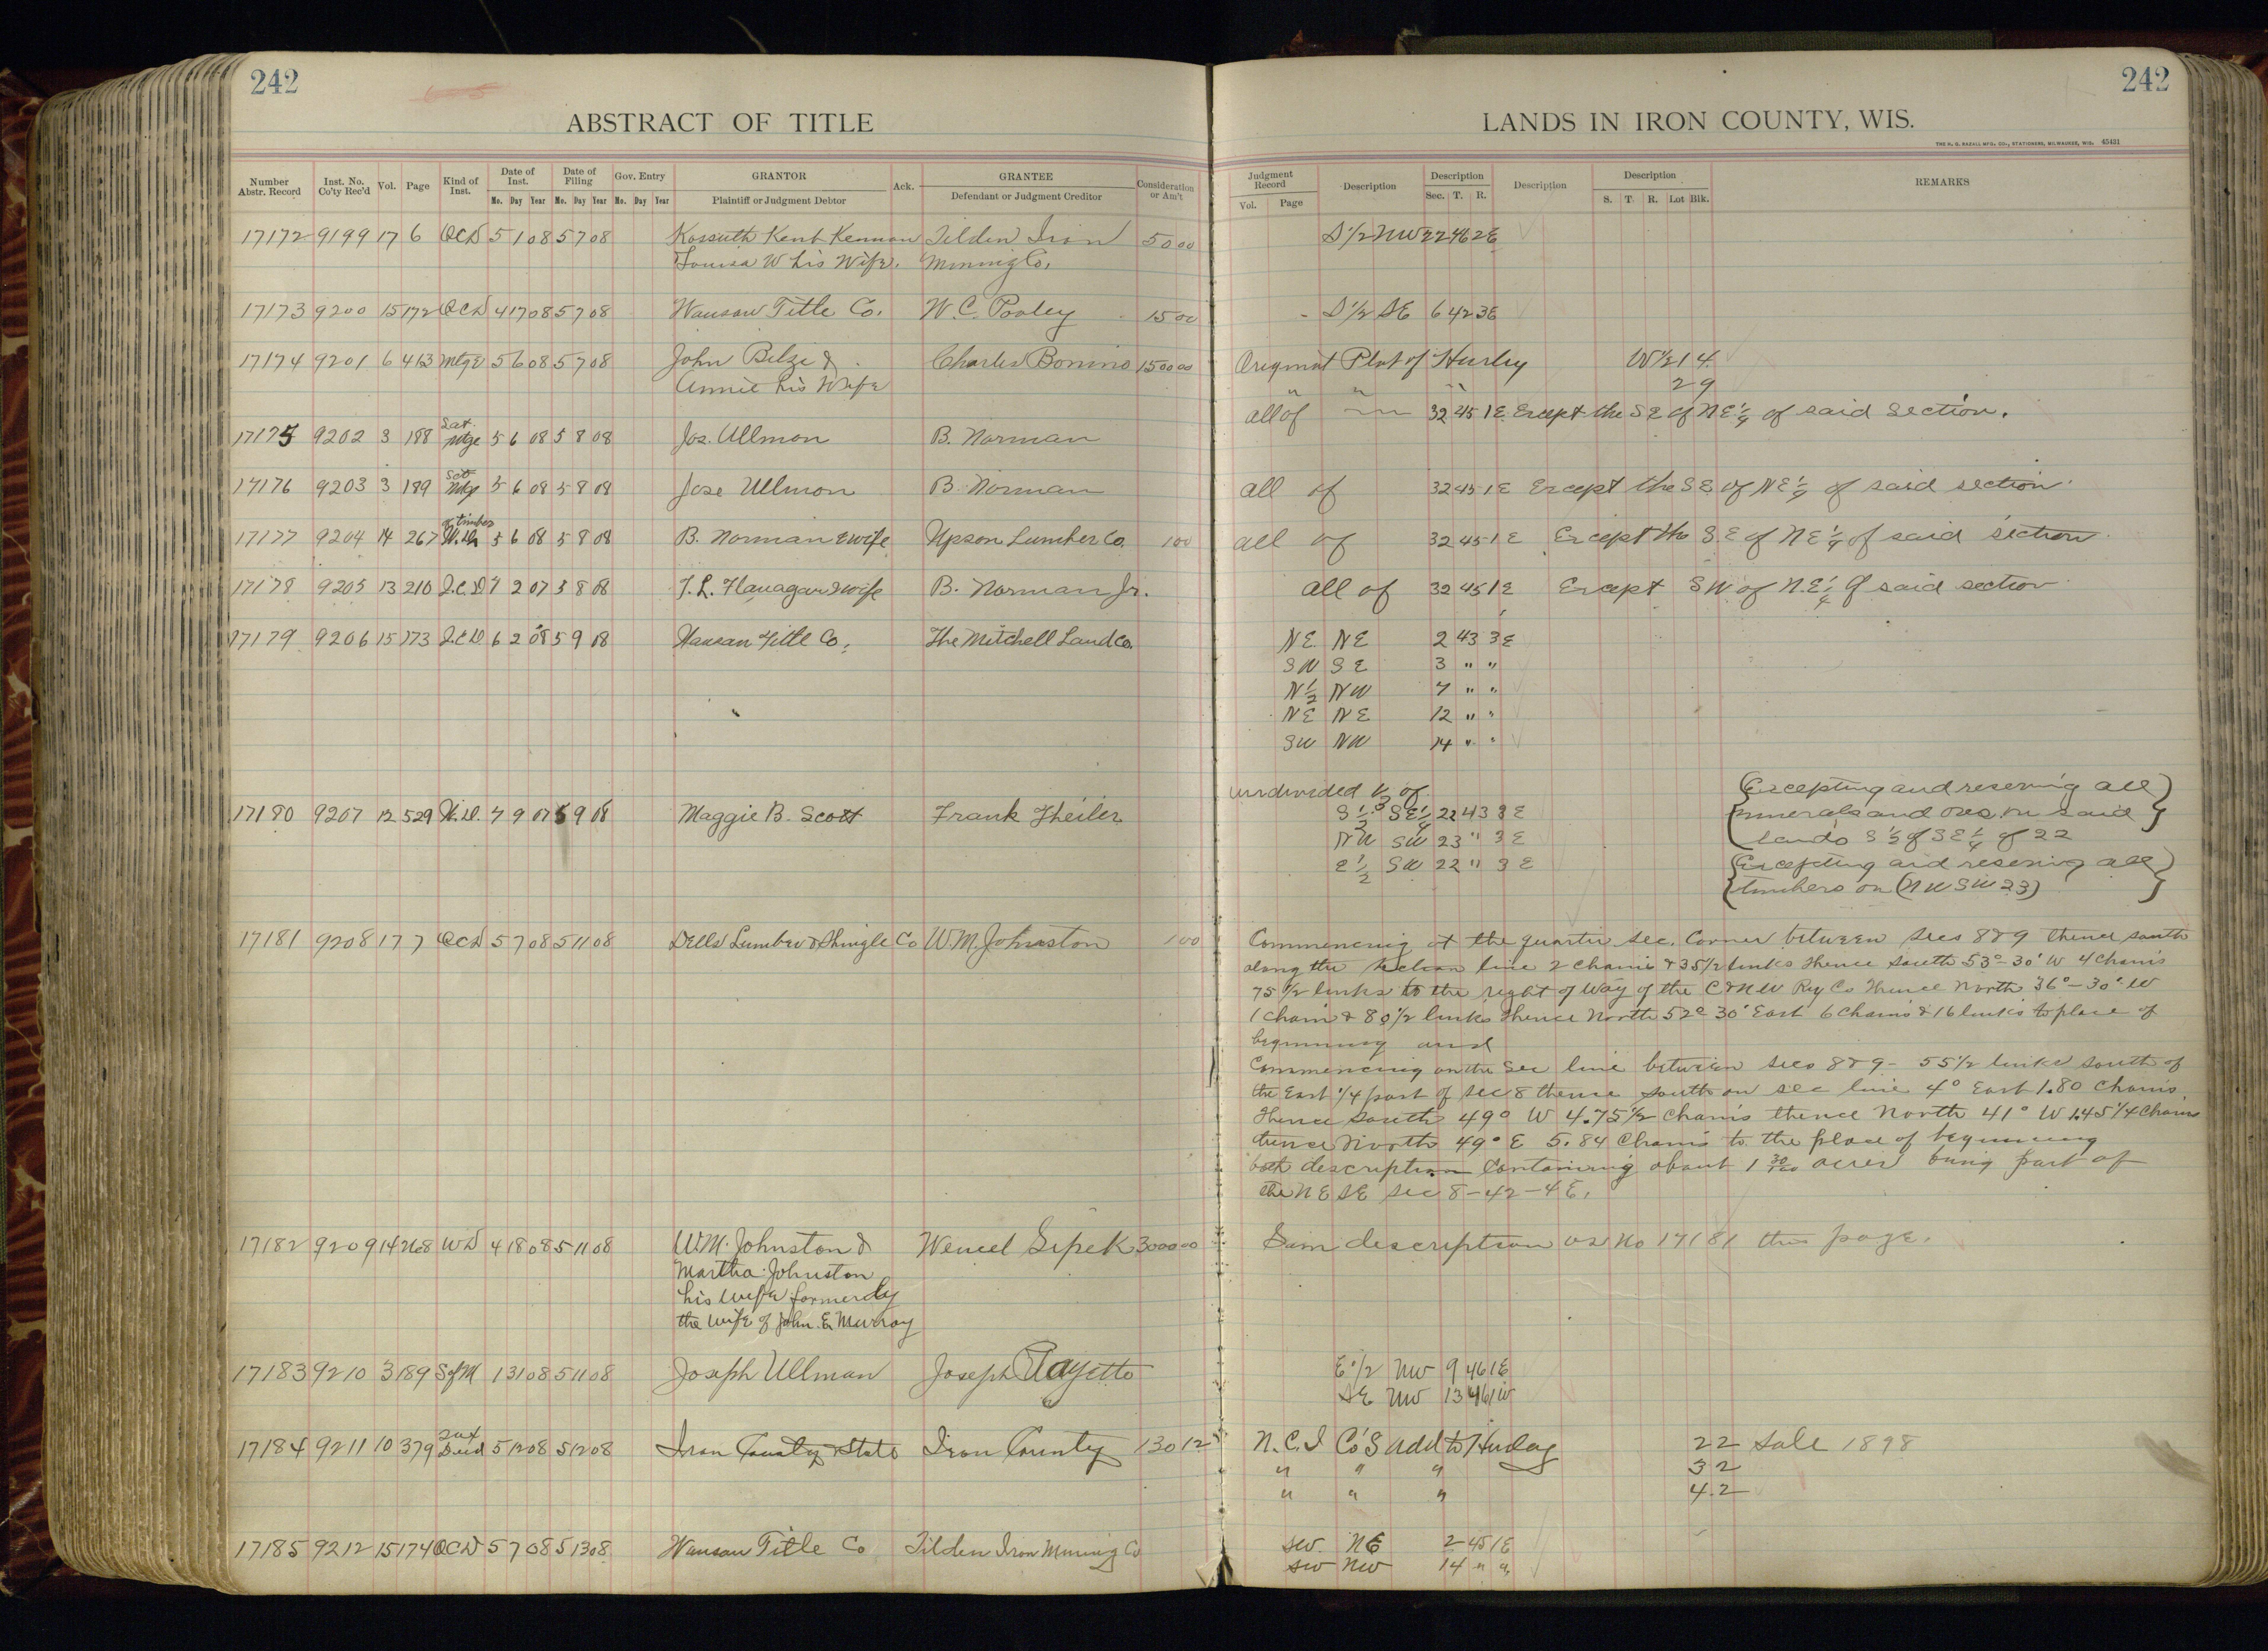 242
ABSTRACT OF TITLE
Number Abstr. Record | Inst. No. Co'ty Rec'd | Vol. | Page | Kind of Inst. | Date of Inst. Mo. Day Year | Date of Filing Mo. Day Year | Gov. Entry Mo. Day Year | GRANTOR Plaintiff or Judgment Debtor | Ack. | GRANTEE Defendant or Judgment Creditor | Consideration or Am't
17172 9199 17 6 QCD 5 1 08 5 7 08 Kossuth Kent Kennan Tilden Iron 50 00
Louisa W his Wife. Mining Co.
17173 9200 15 172 QCD 4 17 08 5 7 08 Wausau Title Co. W. C. Pooley 15 00
17174 9201 6 413 Mtge 5 6 08 5 7 08 John Belze & Charles Bonino 1500 00
Annie his Wife
17175 9202 3 188 Sat. Mtge 5 6 08 5 8 08 Jos. Ullmon B. Norman
17176 9203 3 189 Sat Mtge 5 6 08 5 8 08 Jose Ullmon B. Norman
17177 9204 14 267 of timber W.D. 5 6 08 5 8 08 B. Norman & wife Upson Lumber Co. 1 00
17178 9205 13 210 2.C.D 7 2 07 5 8 08 T. L. Flanagan & wife B. Norman Jr.
17179 9206 15 173 2.C.D. 6 2 08 5 9 08 Wausau Title Co. The Mitchell Land Co.
17180 9207 12 529 W.D. 7 9 07 5 9 08 Maggie B. Scott Frank Theiler
17181 9208 17 7 QCD 5 7 08 5 11 08 Dells Lumber & Shingle Co W. M. Johnston 1 00
17182 9209 14 268 WD 4 18 08 5 11 08 W. M. Johnston & Wencel Sipek 3000 00
Martha Johnston
his wife formerly
the wife of John E. Murray
17183 9210 3 189 S of M 1 31 08 5 11 08 Joseph Ullman Joseph
17184 9211 10 379 Tax Deed 5 12 08 5 12 08 Iron County & State Iron County 130 12
17185 9212 15 174 QCD 5 7 08 5 13 08 Wausau Title Co Tilden Iron Mining Co
242
LANDS IN IRON COUNTY, WIS.
THE H. G. RAZALL MFG. CO., STATIONERS, MILWAUKEE, WIS. 45431
Judgment Record Vol. Page | Description | Description Sec. T. R. | Description | Description S. T. R. Lot Blk. | REMARKS
S 1/2 NW 22 46 2E
S 1/2 SE 6 42 3E
Original Plat of Hurley W 1/2 14
" " " 2 9
all of 32 45 1 E. Except the SE of NE 1/4 of said section.
all of 32 45 1 E Except the SE of NE 1/4 of said section.
all of 32 45 1 E Except the S.E of NE 1/4 of said section.
all of 32 45 1 E Except SW of N.E 1/4 of said section
NE NE 2 43 3 E
SW SE 3 " "
N 1/2 NW 7 " "
NE NE 12 " "
SW NW 14 " "
undivided 1/2 of
S 1/2 SE 1/4 22 43 3 E
NW SW 23 " 3 E
E 1/2 SW 22 " 3 E
Excepting and reserving all
minerals and ores in said
lands S 1/2 of SE 1/4 of 22
Excepting and reserving all
timbers on (NW SW 23)
Commencing at the quarter sec. corner between secs 8 & 9 thence south
along the section line 2 chains & 35 1/2 links thence south 53°-30' W 4 chains
75 1/2 links to the right of way of the C & NW Ry Co thence North 36°-30' W
1 chain & 80 1/2 links thence North 52° 30' East 6 chains & 16 links to place of
beginning and
Commencing on the Sec line between secs 8 & 9 - 55 1/2 links south of
the East 1/4 post of sec 8 thence south on sec line 4° East 1.80 chains
thence South 49° W 4.75 1/2 chains thence North 41° W 1.45 1/4 chains
thence North 49° E 5.84 chains to the place of beginning
both description containing about 1 30/100 acres being part of
the NE SE sec 8-42-4E.
Sam description as No 17181 this page.
E 1/2 NW 9 46 1E
SE NW 13 46 1W
N. C. I Co's Add to Hurley 22 Sale 1898
" " " 32
" " " 42
SW NE 2 45 1E
SW NW 14 " "